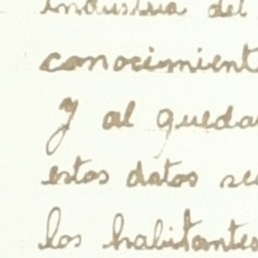 industria del
conocimient
y al queda
estos datos se
los habitantes